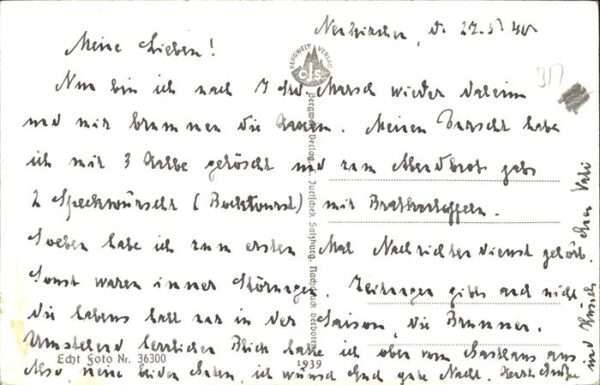 Neukirchen, d. 27.5.40
Meine Lieben!
Nun bin ich nach 7 Std Marsch wieder daheim
und mir brummen die Haxen. Meinen Durscht habe
ich mit 3 Halbe gelöscht und zum Abendbrot gabs
2 Speckwürscht (Bockwurst) mit Bratkartoffeln.
Soeben habe ich zum ersten Mal Nachrichtendienst gehört.
Sonst waren immer Störungen. Zeitungen gibts auch nicht
die habens halt nur in der Saison, die Brunner.
Umstehend herrlichen Blick hatte ich aber vom Gasthaus aus
Also meine beiden, ich wünsch Euch gute Nacht. Herzl. Grüße
und Küsse Euer Vati
317
BERGWELT VERLAG
C.J.S.
Bergwelt-Verlag C. Jurischek Salzburg. Nachdruck verboten
Echt Foto Nr. 36300
1939